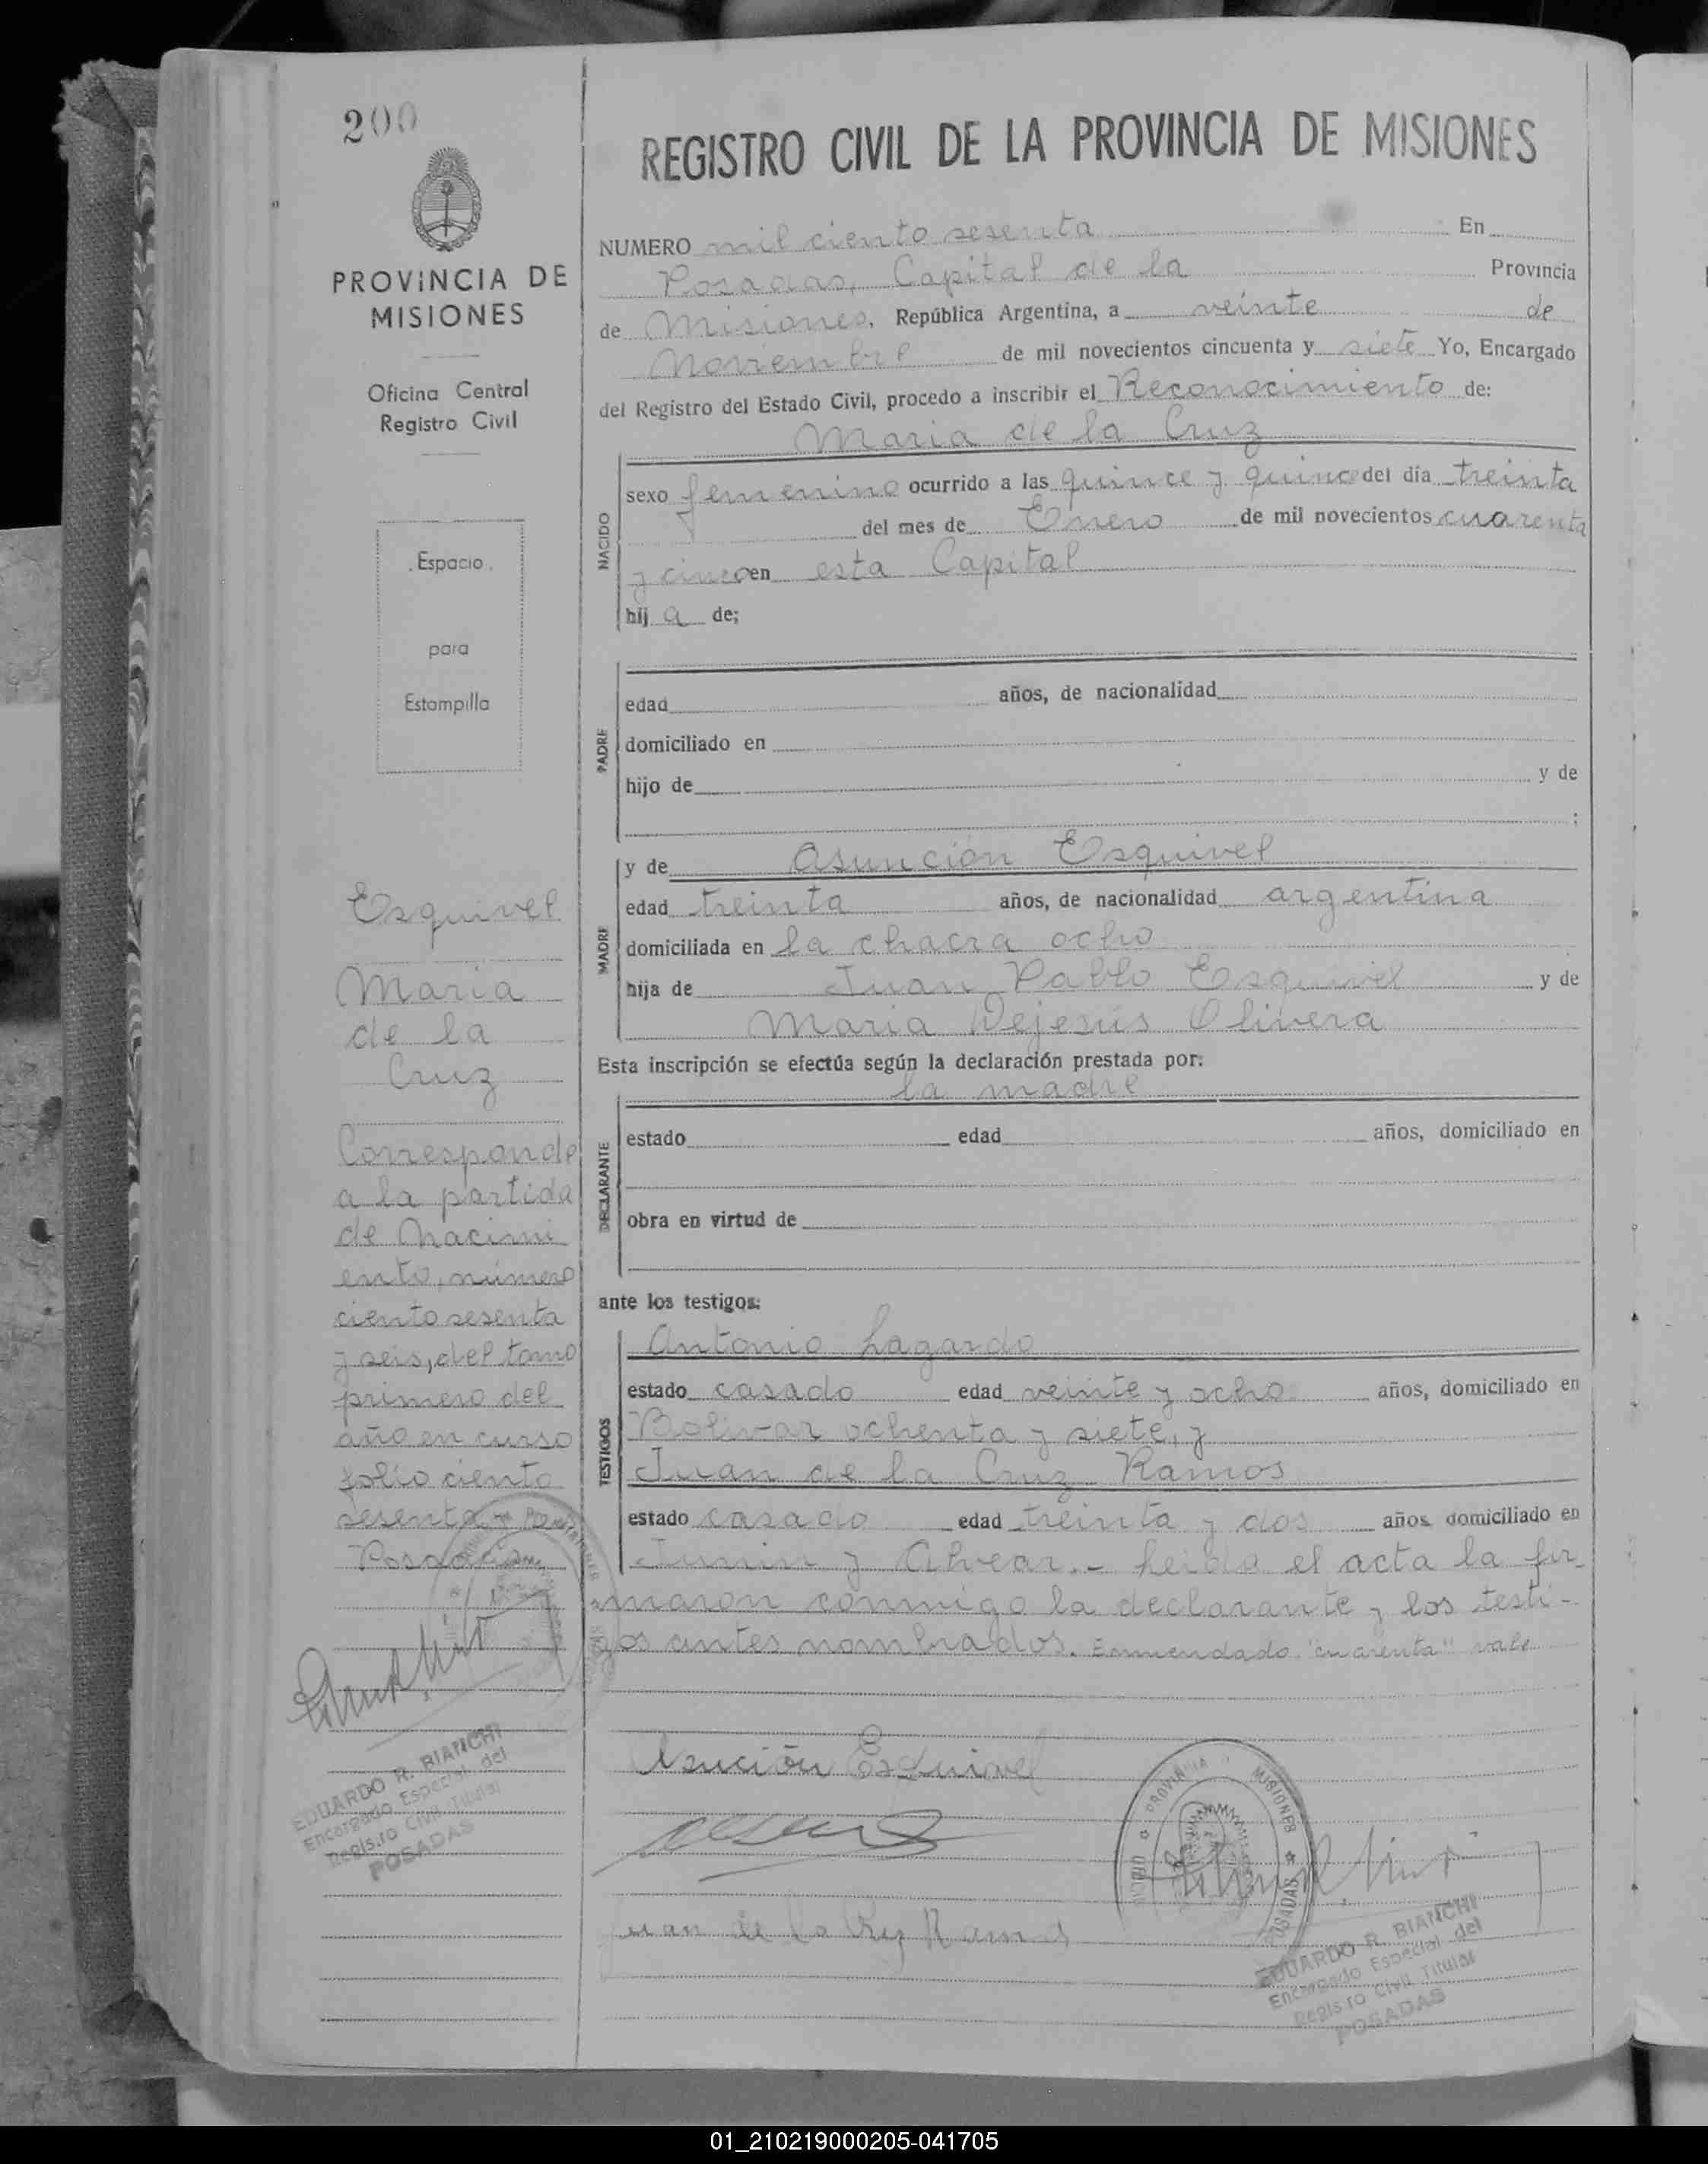 200
PROVINCIA DE
MISIONES
Oficina Central
Registro Civil
Espacio
para
Estampilla
Esquivel
Maria
de la
Cruz
Corresponde
a la partida
de Nacimi
ento, número
ciento sesenta
y seis, del tomo
primero del
año en curso
folio ciento
sesenta y
Posadas
EDUARDO R. BIANCHI
Encargado Especial del
Registro Civil Titular
POSADAS
REGISTRO CIVIL DE LA PROVINCIA DE MISIONES
NUMERO mil ciento sesenta En
Posadas, Capital de la Provincia
de Misiones, República Argentina, a veinte de
Noviembre de mil novecientos cincuenta y siete Yo, Encargado
del Registro del Estado Civil, procedo a inscribir el Reconocimiento de:
Maria de la Cruz
NACIDO
sexo femenino ocurrido a las quince y quince del día treinta
del mes de Enero de mil novecientos cuarenta
y cinco en esta Capital
hij a de;
PADRE
edad años, de nacionalidad
domiciliado en
hijo de y de
;
MADRE
y de Asunción Esquivel
edad treinta años, de nacionalidad argentina
domiciliada en la chacra ocho
hija de Juan Pablo Esquivel y de
Maria Dejesús Olivera
Esta inscripción se efectúa según la declaración prestada por:
la madre
DECLARANTE
estado edad años, domiciliado en
obra en virtud de
ante los testigos:
TESTIGOS
Antonio Lagardo
estado casado edad veinte y ocho años, domiciliado en
Bolivar ochenta y siete, y
Juan de la Cruz Ramos
estado casado edad treinta y dos años domiciliado en
Junin y Alvear.- Leida el acta la fir-
maron conmigo la declarante y los testi-
gos antes nombrados. Enmendado "cuarenta" vale
Asución Esquivel
Juan de la Cruz Ramos
PROVINCIA MISIONES
POSADAS
EDUARDO R. BIANCHI
Encargado Especial del
Registro Civil Titular
POSADAS
01_210219000205-041705